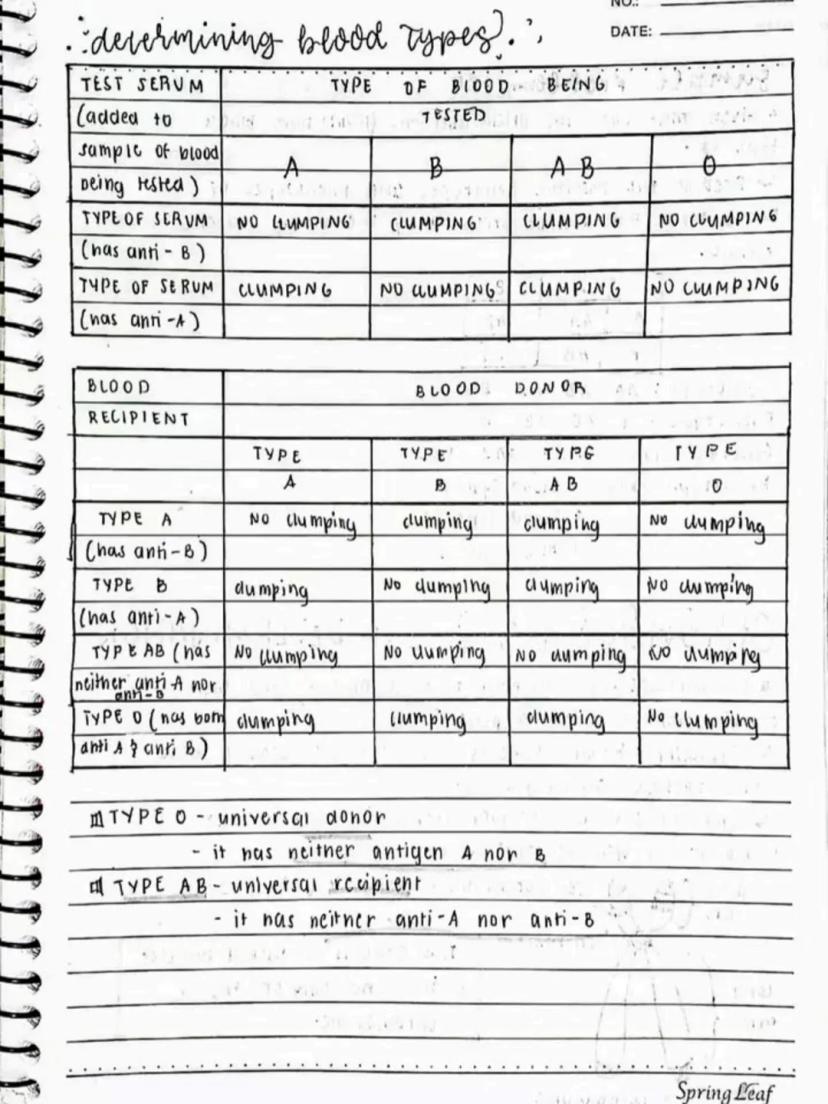 NO.:
DATE:
determining blood types
TEST SERUM TYPE OF BLOOD BEING
(added to TESTED
sample of blood
being tested) A B AB O
TYPE OF SERUM NO CLUMPING CLUMPING CLUMPING NO CLUMPING
(has anti-B)
TYPE OF SERUM CLUMPING NO CLUMPING CLUMPING NO CLUMPING
(has anti-A)
BLOOD BLOOD DONOR
RECIPIENT
TYPE TYPE TYPE TYPE
A B AB O
TYPE A No clumping clumping clumping No clumping
(has anti-B)
TYPE B clumping No clumping clumping No clumping
(has anti-A)
TYPE AB (has No clumping No clumping No clumping No clumping
neither anti-A nor
anti-B
TYPE O (has both clumping clumping clumping No clumping
anti A & anti B)
TYPE O - universal donor
- it has neither antigen A nor B
TYPE AB - universal recipient
- it has neither anti-A nor anti-B
Spring Leaf